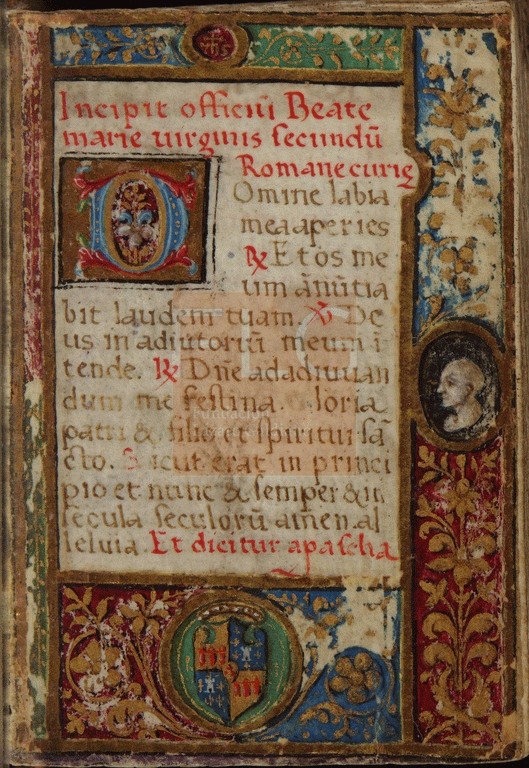 Incipit officiū Beate
marie virginis secundū
Romane curię
Domine labia
mea aperies
℟ Et os me
um ānūtia
bit laudem tuam ℣ De
us in adiutoriū meum ī
tende. ℟ Dn̄e ad adiuuan
dum me festina. Gloria
patri & filio et spiritui sā
cto. Sicut erat in princi
pio et nunc & semper & in
secula seculorū amen. al
leluia. Et dicitur a pascha